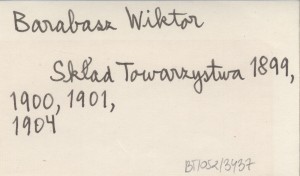 Barabasz Wiktor
Skład Towarzystwa 1899,
1900, 1901,
1904
BT/052/3437